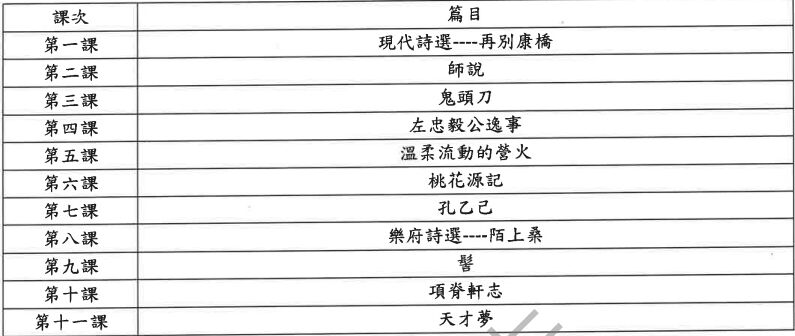 課次 篇目
第一課 現代詩選----再別康橋
第二課 師說
第三課 鬼頭刀
第四課 左忠毅公逸事
第五課 溫柔流動的營火
第六課 桃花源記
第七課 孔乙己
第八課 樂府詩選----陌上桑
第九課 髻
第十課 項脊軒志
第十一課 天才夢